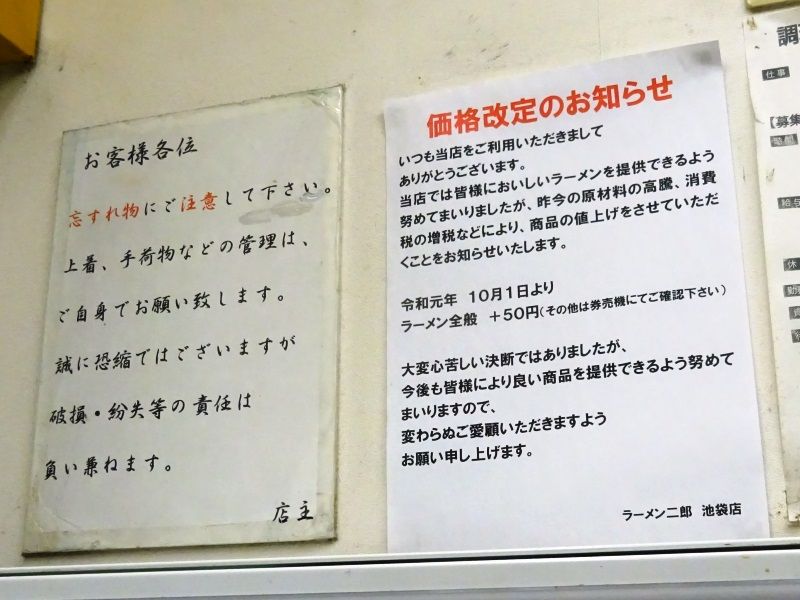 お客様各位
忘すれ物にご注意して下さい。
上着、手荷物などの管理は、
ご自身でお願い致します。
誠に恐縮ではございますが
破損・紛失等の責任は
負い兼ねます。
店主
価格改定のお知らせ
いつも当店をご利用いただきまして
ありがとうございます。
当店では皆様においしいラーメンを提供できるよう
努めてまいりましたが、昨今の原材料の高騰、消費
税の増税などにより、商品の値上げをさせていただ
くことをお知らせいたします。
令和元年 10月1日より
ラーメン全般 +50円(その他は券売機にてご確認下さい)
大変心苦しい決断ではありましたが、
今後も皆様により良い商品を提供できるよう努めて
まいりますので、
変わらぬご愛顧いただきますよう
お願い申し上げます。
ラーメン二郎 池袋店
仕事
【募集
給与
休
勤